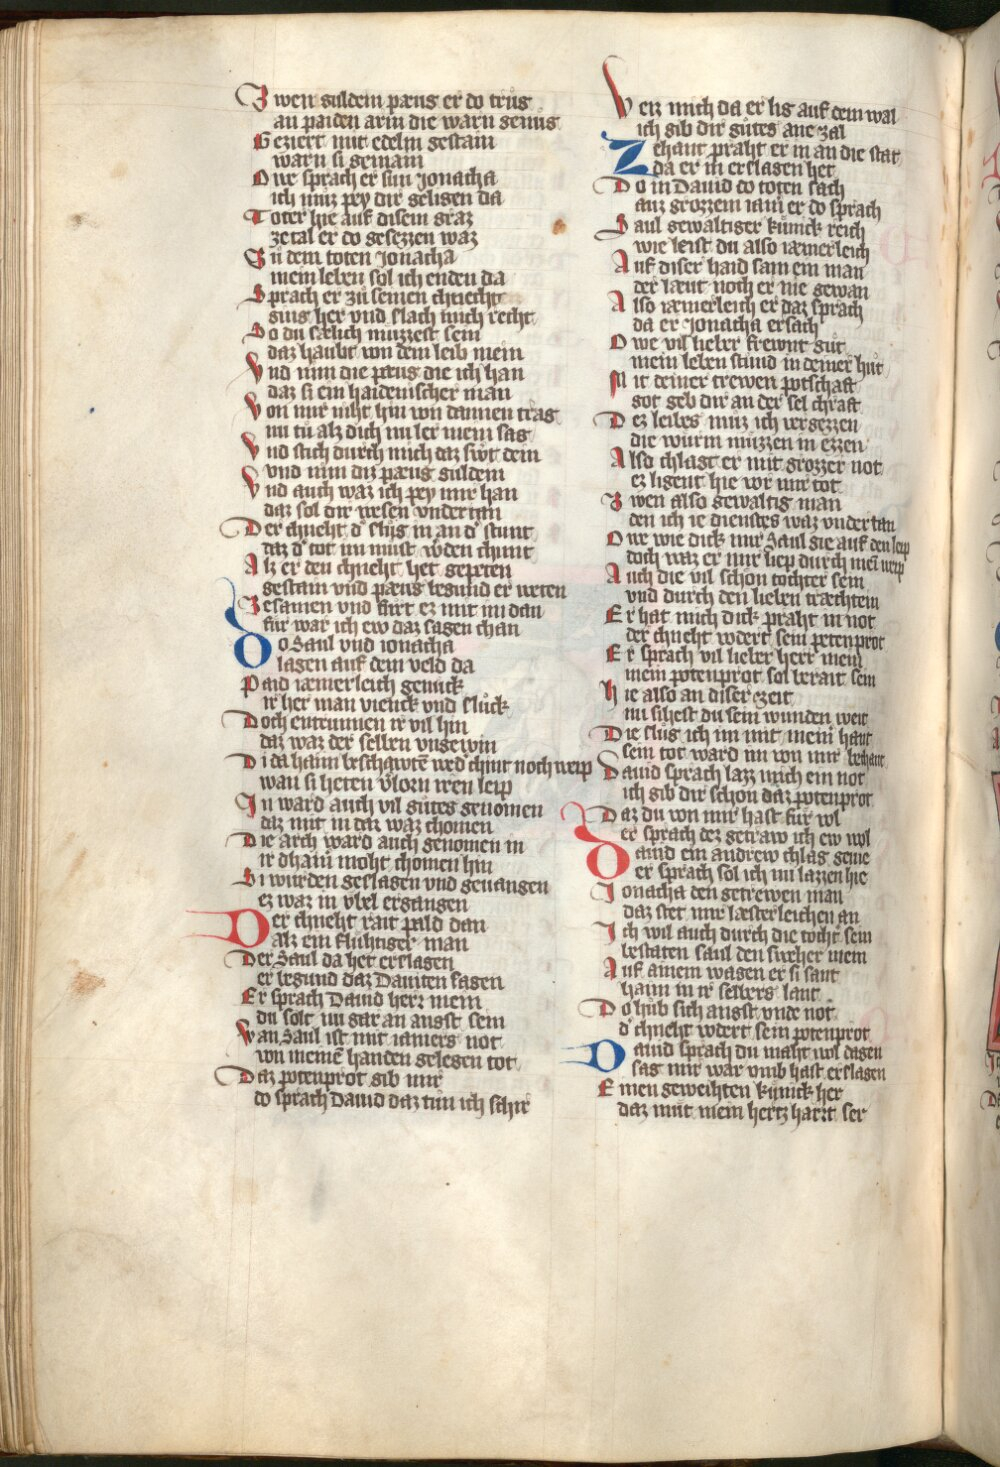 Zwen guldein pæug er do trug
an paiden arm die warn genug
Geziert mit edelm gestain
warn si gemain
Owe sprach er sun Jonatha
ich muz pey dir geligen da
Toter hie auf disem graz
zetal er do gesezzen waz
Zu dem toten Jonatha
mein leben sol ich enden da
Sprach er zu seinem chnecht
ging her vnd slach mich recht
So du sælich muzzest sein
daz haubt von dem leib mein
Vnd nim die pæug die ich han
daz si ein haidenischer man
Von mir niht hin von dannen trag
nu tu alz dich nu ler mein sag
Vnd stich durch mich daz swt dein
vnd nim diz pæug guldein
Vnd auch waz ich pey mir han
daz sol dir wesen vndertan
Der chneht d' slug in an d' stunt
daz d' tot im must w'den chunt
Alz er den chneht het gepeten
gestain vnd pæug begund er weten
Zesamen vnd furt ez mit im dan
fur war ich ew daz sagen chan
Do Saul vnd ionatha
lagen auf dem veld da
Paid iæmerleich genuck
ir her man vienck vnd sluck
Doch entrunnen ir vil hin
daz waz der selben vngewin
Di da haim beschawten wed' chint noch weip
wan si heten v'lorn iren leip
In ward auch vil gutes genomen
daz mit in dar waz chomen
Die arch ward auch genomen in
ir dhaini moht chomen hin
Si wurden geslagen vnd geuangen
ez waz in vbel ergangen
Der chneht rait pald dan
alz ein fluhtiger man
Der Saul da het erslagen
er begund daz Dauiten sagen
Er sprach Dauid herr mein
du solt nu gar an angst sein
Wan Saul ist mit iamers not
von meinen handen gelegen tot
Daz potenprot gib mir
do sprach Dauid daz tun ich schir
Weiz mich da er lig auf dem wal
ich gib dir gutes ane zal
Zehant praht er in an die stat
da er in erslagen het
Do in Dauid do toten sach
auz grozzem iam er do sprach
Saul gewaltiger kunick reich
wie leist du also iæmerleich
Auf diser haid sam ein man
der læut noch er nie gewan
Also iæmerleich er daz sprach
da er Jonatha ersach
Owe vil lieber frewnt gut
mein leben stund in deiner hut
Mit deiner trewen potschaft
got geb dir an der sel chraft
Dez leibes muz ich vergezzen
die wurm muzzen in ezzen
Also chlagt er mit grozzer not
ez ligent hie vor mir tot
Zwen also gewaltig man
den ich ie dienstes waz vndertan
Owe wie dick mir Saul gie auf den leip
doch waz er mir liep durch mein weip
Auch die vil schon tochter sein
vnd durch den lieben træchtein
Er hat mich dick praht in not
der chneht vodert sein petenprot
Er sprach vil lieber herr mein
mein potenprot sol berait sein
Hie also an diser zeit
nu sihest du sein wunden weit
Die slug ich im mit meinr hant
sein tot ward im von mir bechant
Dauid sprach lazz mich ein not
ich gib dir schon daz potenprot
Daz du von mir hast fur vol
er sprach dez getraw ich ew wol
Dauid ein andrew chlag geuie
er sprach sol ich nu lazzen hie
Jonatha den getrewen man
daz stet mir læsterleichen an
Ich wil auch durch die tocht' sein
bestaten saul den sweher mein
Auf ainem wagen er si sant
haim in ir selbers lant
Do hub sich angst vnde not
d' chneht vodert sein potenprot
Dauid sprach du maht wol dagen
sag mir war vmb hast erslagen
Einen geweihten kunick her
daz mut mein hertz harrt ser